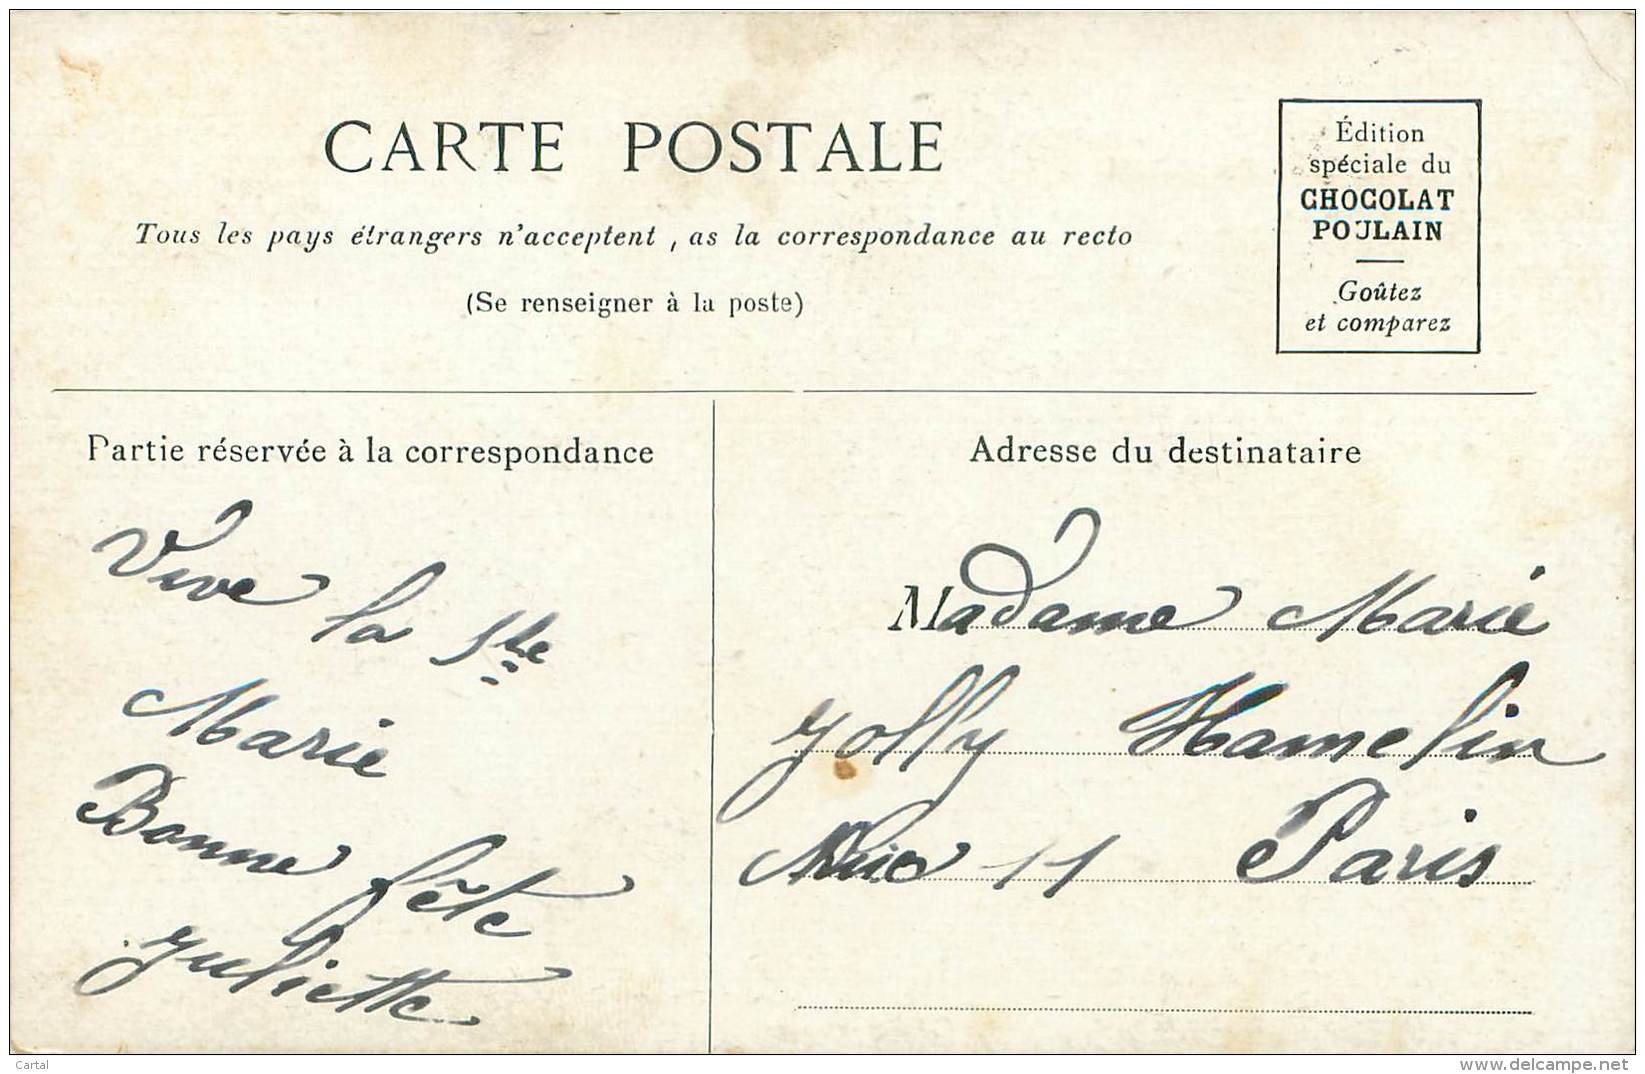 CARTE POSTALE
Tous les pays étrangers n'acceptent , as la correspondance au recto
(Se renseigner à la poste)
Édition
spéciale du
CHOCOLAT
POULAIN
Goûtez
et comparez
Partie réservée à la correspondance
Vive la Ste
Marie
Bonne fête
Juliette
Adresse du destinataire
Madame Marie
Jolly Hamelin
11 Paris
Cartal
www.delcampe.net